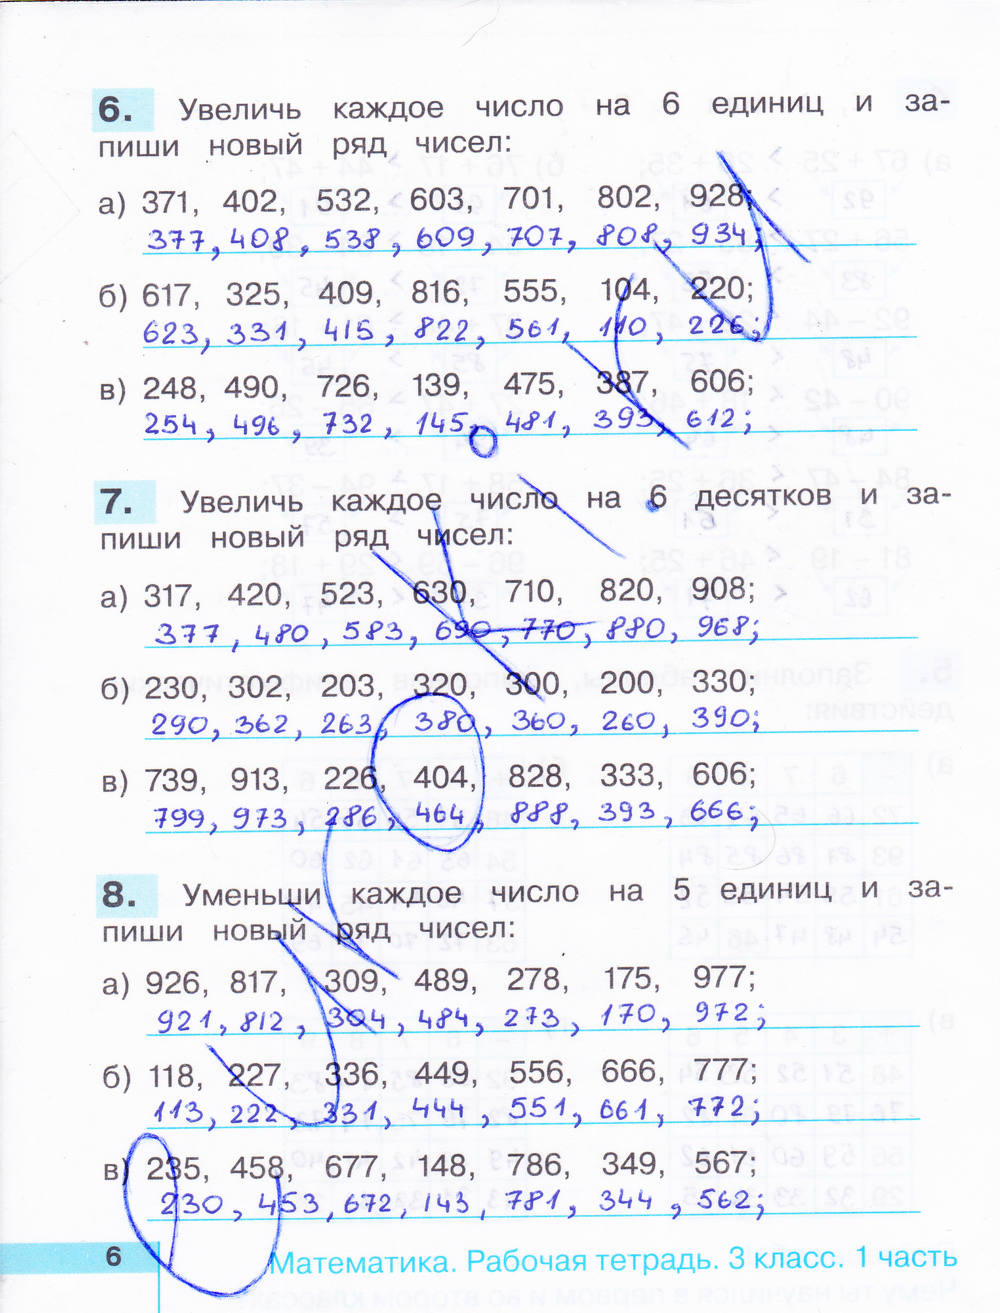 6. Увеличь каждое число на 6 единиц и за-
пиши новый ряд чисел:
а) 371, 402, 532, 603, 701, 802, 928;
377, 408, 538, 609, 707, 808, 934;
б) 617, 325, 409, 816, 555, 104, 220;
623, 331, 415, 822, 561, 110, 226,
в) 248, 490, 726, 139, 475, 387, 606;
254, 496, 732, 145, 481, 393, 612;
7. Увеличь каждое число на 6 десятков и за-
пиши новый ряд чисел:
а) 317, 420, 523, 630, 710, 820, 908;
377, 480, 583, 690, 770, 880, 968;
б) 230, 302, 203, 320, 300, 200, 330;
290, 362, 263, 380, 360, 260, 390;
в) 739, 913, 226, 404, 828, 333, 606;
799, 973, 286, 464, 888, 393, 666;
8. Уменьши каждое число на 5 единиц и за-
пиши новый ряд чисел:
а) 926, 817, 309, 489, 278, 175, 977;
921, 812, 304, 484, 273, 170, 972;
б) 118, 227, 336, 449, 556, 666, 777;
113, 222, 331, 444, 551, 661, 772;
в) 235, 458, 677, 148, 786, 349, 567;
230, 453, 672, 143, 781, 344, 562;
6 Математика. Рабочая тетрадь. 3 класс. 1 часть